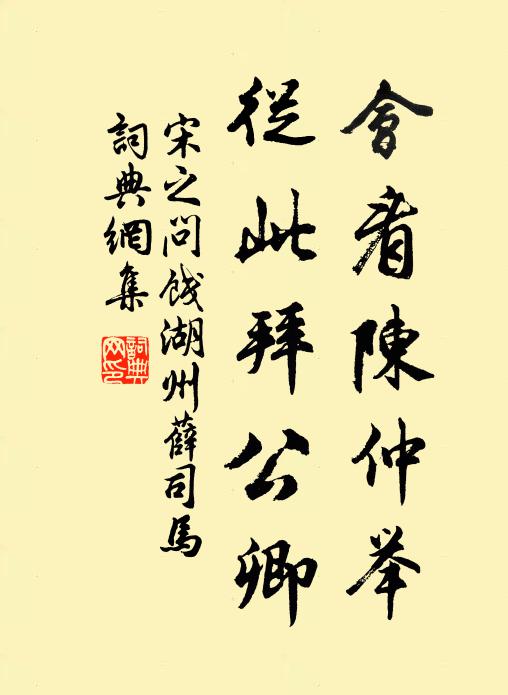 會看陳仲举
從此拜公卿
宋之问餞湖州薛司馬
詞典網集
詞典网印